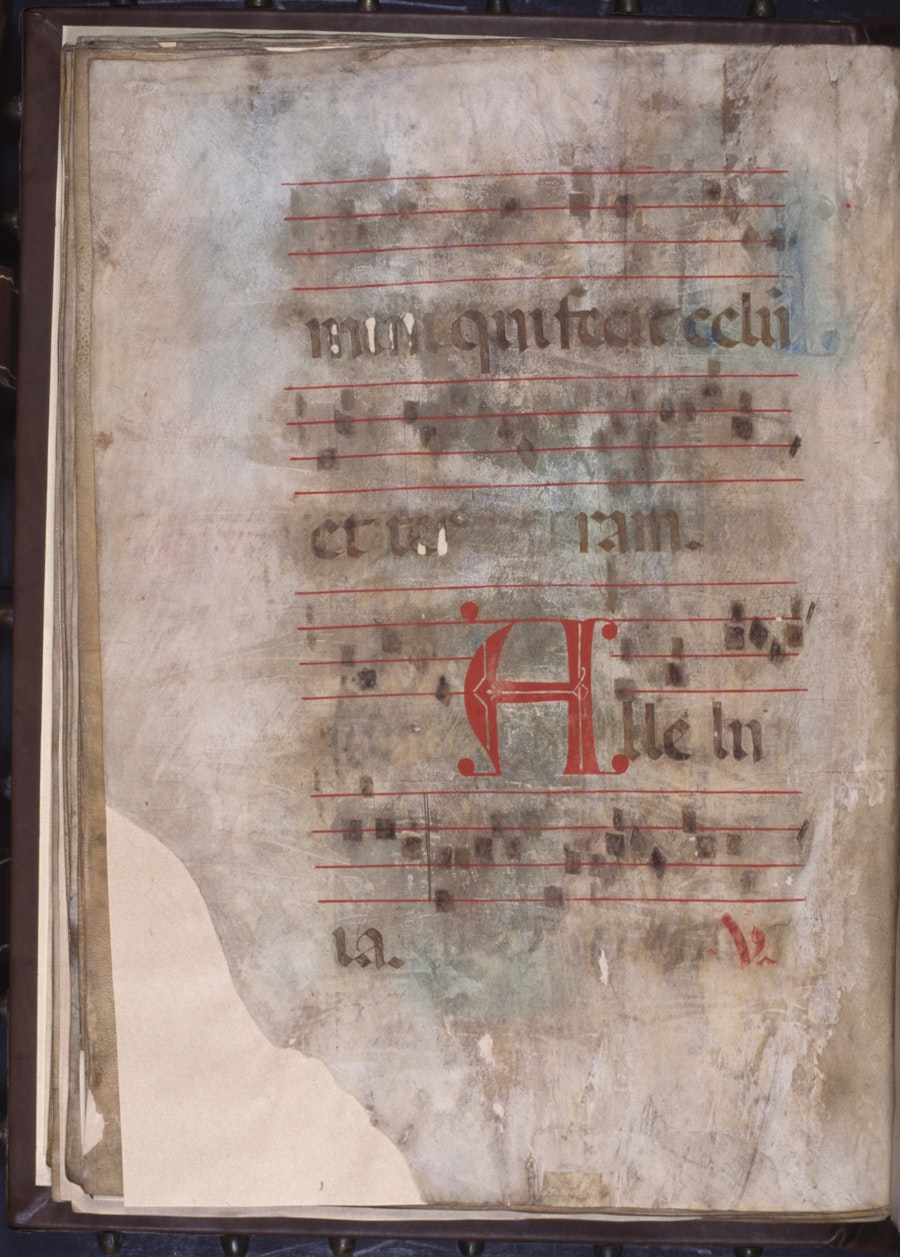 mini qui fecit celū
et ter ram.
Alle lu
ia. V.